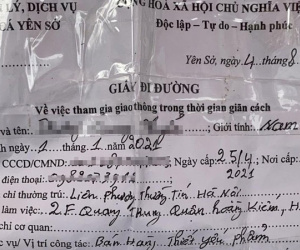 LÝ, DỊCH VỤ
CỘNG HOÀ XÃ HỘI CHỦ NGHĨA VIỆ
CÁ YÊN SỞ
Độc lập - Tự do - Hạnh phúc
Yên Sở, ngày 4 tháng 8
GIẤY ĐI ĐƯỜNG
Về việc tham gia giao thông trong thời gian giãn cách
và tên: Giới tính: Nam
h ngày 1 tháng 1 2021
CCCD/CMND: Ngày cấp: 25/4
điện thoại: 2021
chỉ thường trú: Liên Phương, Thường Tín, Hà Nội
làm việc: 2.F. Quang Trung Quận hoàn Kiếm, H
chỉ cơ quan:
c vụ/ Vị trí công tác: Bán Hàng Thiết yếu phẩm